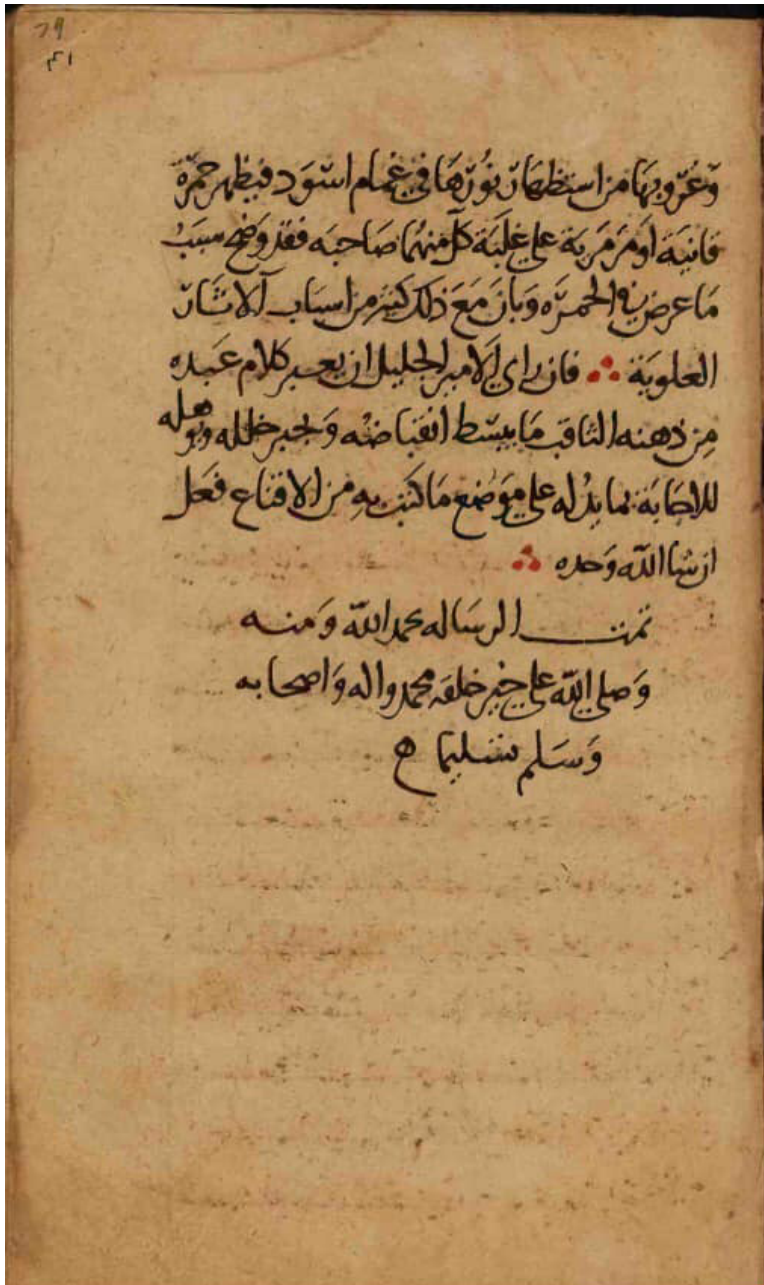 ٦٩
٤١
وغروبها من استظهار نورها في غمام اسود فيظهر حمرة
قانية او مرمرية علي غلبة كل منهما صاحبه فقد وضح سبب
ما عرض في الحمرة وبان مع ذلك كثير من اسباب الاثار
العلوية ∴ فان راي الامير الجليل ان يعير كلام عبده
من ذهنه الثاقب ما يبسط انقباضه ويجبر خلله ويوهله
للاصابة بما يدله علي موضع ما كتب به من الاقناع فعل
ان شا الله وحده ∴
تمت الرساله بحمد الله ومنه
وصلي الله علي خير خلقه محمد واله واصحابه
وسلم تسليما ه